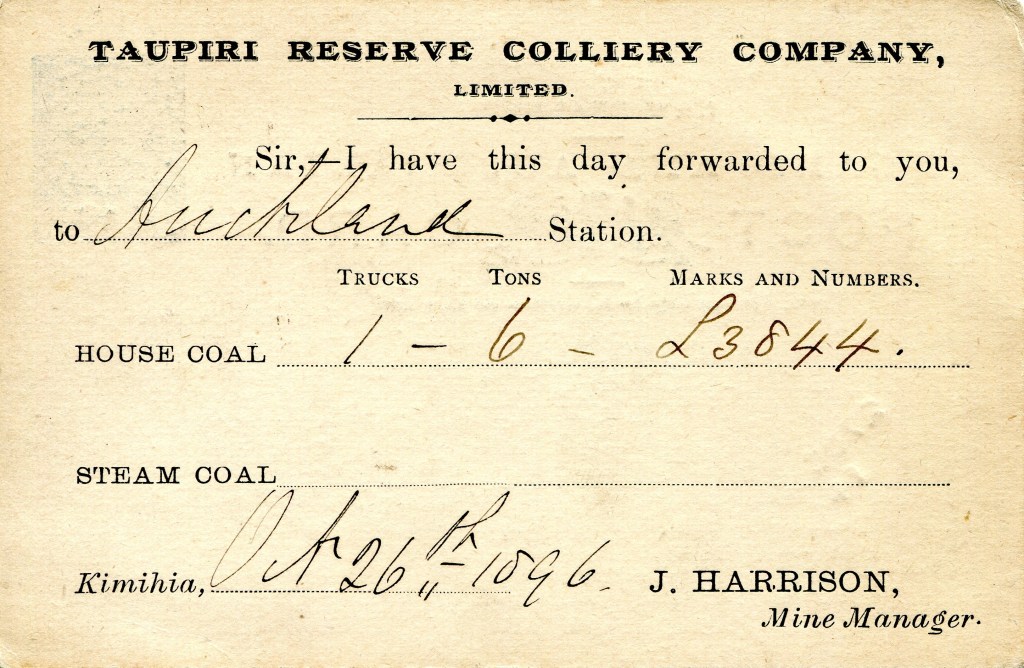 TAUPIRI RESERVE COLLIERY COMPANY,
LIMITED.
Sir,—I have this day forwarded to you,
to Auckland Station.
TRUCKS TONS MARKS AND NUMBERS.
HOUSE COAL 1 – 6 – L3844.
STEAM COAL
Kimihia, Oct 26th 1896. J. HARRISON,
Mine Manager.